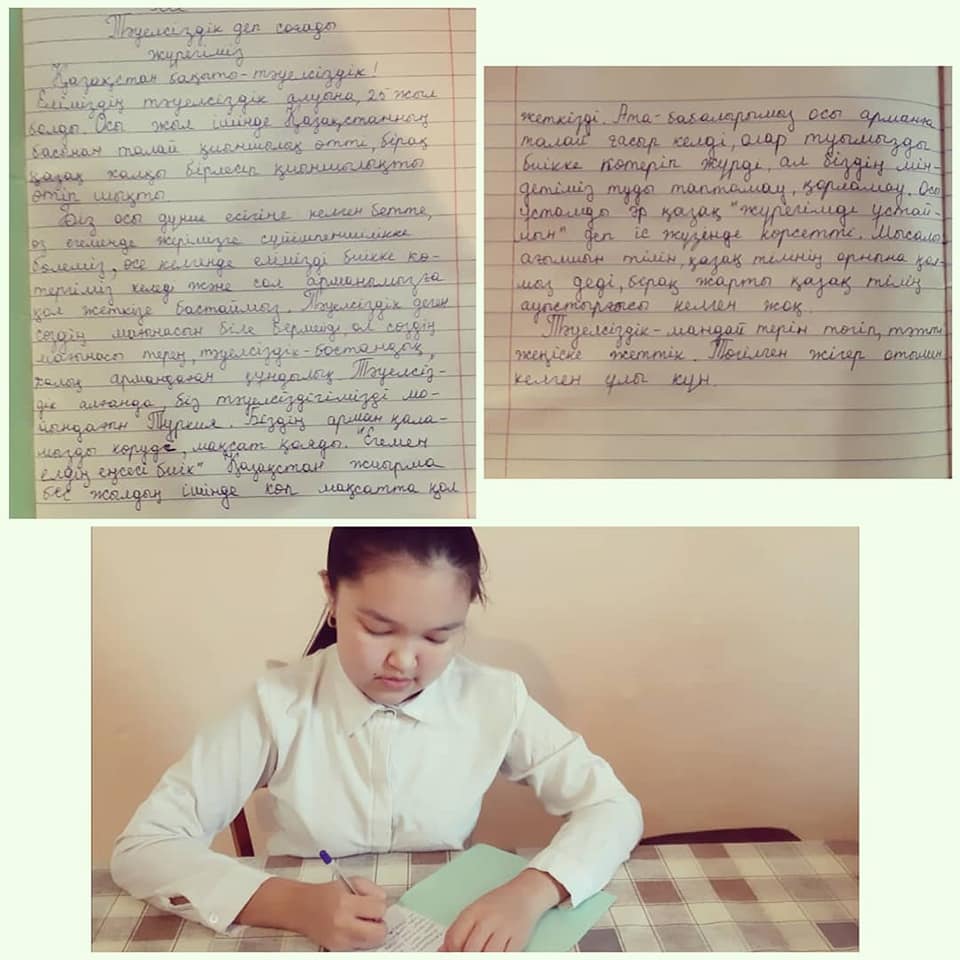 Тәуелсіздік деп соғады
жүрегіміз
Қазақстан бақыты-тәуелсіздік!
Еліміздің тәуелсіздік алуына, 25 жыл
болды. Осы жыл ішінде Қазақстанның
басынан талай қиыншылық өтті, бірақ
қазақ халқы бірлесіп қиыншылықты
өтіп шықты.
Біз осы дүние есігіне келген бетте,
өз егеменде жерімізге сүйіспеншілікке
бөлеміз, өсе келгенде елімізді биікке кө-
тергіміз келеді және сол арманымызға
қол жеткізе бастаймыз. Тәуелсіздік деген
сөздің мағынасын біле бермейді ол сөздің
мағынасы терең, тәуелсіздік-бостандық,
халық армандаған құндылық. Тәуелсіз-
дік алғанда, біз тәуелсіздігімізді мо-
йындаған Туркия. Біздің арман қала-
мызды көруде, мақсат қояды. "Егемен
елдің еңсесі биік" Қазақстан жиырма
бес жылдың ішінде көп мақсатта қол
жеткізді. Ата-бабаларымыз осы арманға
талай ғасыр келді, олар туымызды
биікке көтеріп жүрді, ал біздің мін-
детіміз туды таптамау, қорламау. Осы
ұстамды әр қазақ "жүрегімде ұстай-
мын" деп іс жүзінде көрсетті. Мысалы
ағылшын тілін, қазақ тілінің орнына қол-
мыз деді, бірақ жарты қазақ тілін
ауыстырғысы келген жоқ.
Тәуелсіздік-маңдай терін төгіп, тәтті
жеңіске жеттік. Төгілген жігер отымен
келген ұлы күн.